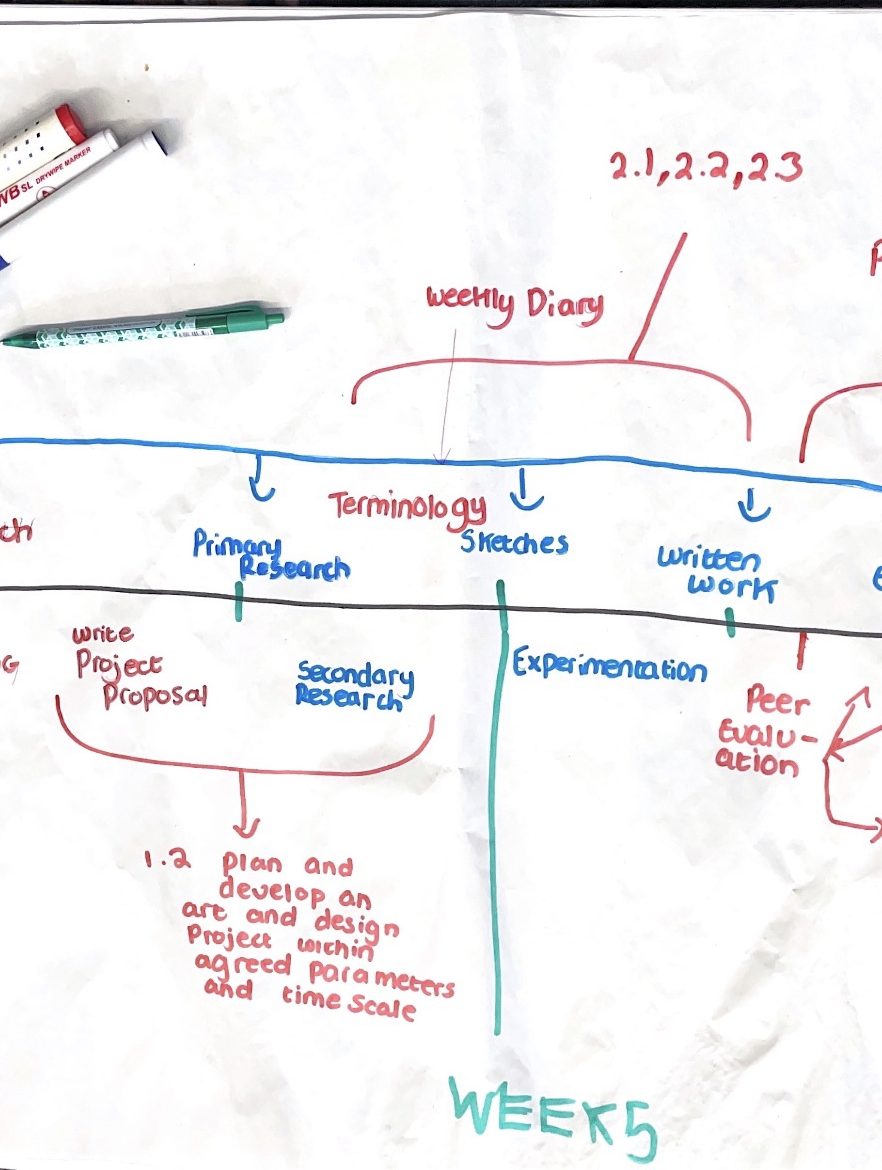 WBSL DRYWIPE MARKER
2.1, 2.2, 2.3
P
Weekly Diary
Terminology
ch
Primary
Research
Sketches
Written
Work
G
Write
Project
Proposal
Secondary
Research
Experimentation
Peer
Evalu-
ation
1.2 Plan and
develop an
art and design
Project within
agreed parameters
and time scale
WEEK 5